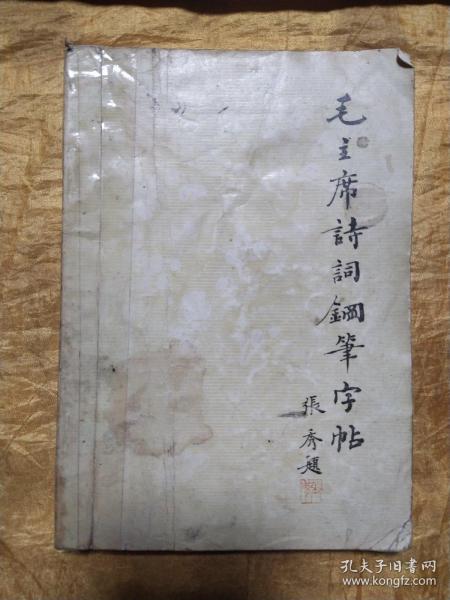 毛主席詩詞鋼筆字帖
張秀題
孔夫子旧书网
www.kongfz.com